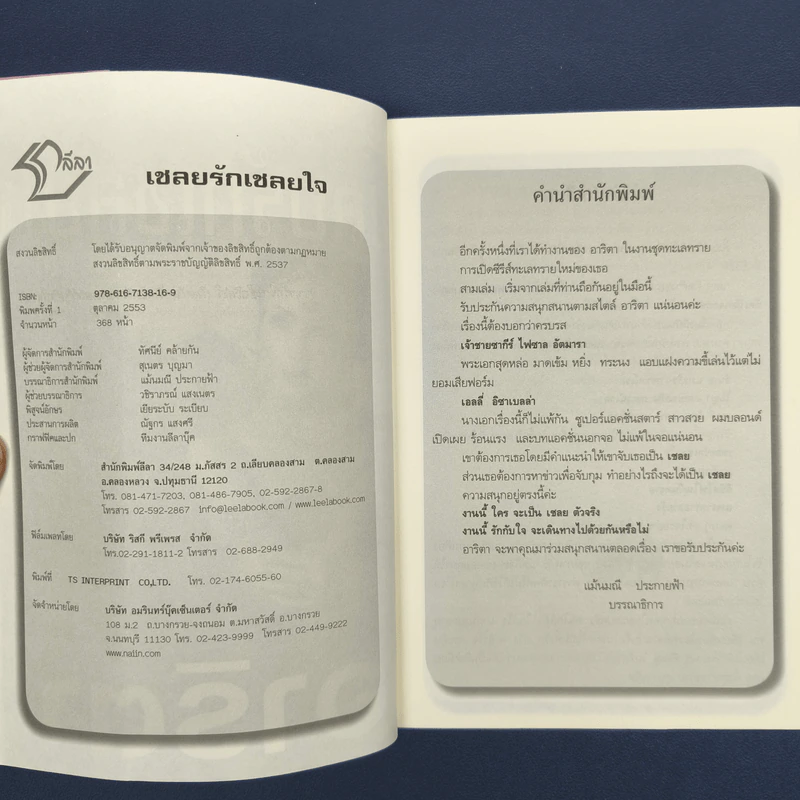 ลีลา
เชลยรักเชลยใจ
สงวนลิขสิทธิ์ โดยได้รับอนุญาตจัดพิมพ์จากเจ้าของลิขสิทธิ์ถูกต้องตามกฎหมาย
สงวนลิขสิทธิ์ตามพระราชบัญญัติลิขสิทธิ์ พ.ศ. 2537
ISBN: 978-616-7138-16-9
พิมพ์ครั้งที่ 1 ตุลาคม 2553
จำนวนหน้า 368 หน้า
ผู้จัดการสำนักพิมพ์ ทัศนีย์ คล้ายกัน
ผู้ช่วยผู้จัดการสำนักพิมพ์ สุเนตร บุญมา
บรรณาธิการสำนักพิมพ์ แม้นมณี ประกายฟ้า
ผู้ช่วยบรรณาธิการ วชิราภรณ์ แสงเนตร
พิสูจน์อักษร เยียระบับ ระเบียบ
ประสานการผลิต ณัฐกร แสงศรี
กราฟฟิคและปก ทีมงานลีลาบุ๊ค
จัดพิมพ์โดย สำนักพิมพ์ลีลา 34/248 ม.ภัสสร 2 ถ.เลียบคลองสาม ต.คลองสาม
อ.คลองหลวง จ.ปทุมธานี 12120
โทร. 081-471-7203, 081-486-7905, 02-592-2867-8
โทรสาร 02-592-2867 info@leelabook.com / www.leelabook.com
ฟิล์มเพลทโดย บริษัท ริสกี พรีเพรส จำกัด
โทร.02-291-1811-2 โทรสาร 02-688-2949
พิมพ์ที่ TS INTERPRINT CO.,LTD. โทร. 02-174-6055-60
จัดจำหน่ายโดย บริษัท อมรินทร์บุ๊คเซ็นเตอร์ จำกัด
108 ม.2 ถ.บางกรวย-จงถนอม ต.มหาสวัสดิ์ อ.บางกรวย
จ.นนทบุรี 11130 โทร. 02-423-9999 โทรสาร 02-449-9222
www.naiin.com
คำนำสำนักพิมพ์
อีกครั้งหนึ่งที่เราได้ทำงานของ อาริตา ในงานชุดทะเลทราย
การเปิดซีรีส์ทะเลทรายใหม่ของเธอ
สามเล่ม เริ่มจากเล่มที่ท่านถือกันอยู่ในมือนี้
รับประกันความสนุกสนานตามสไตล์ อาริตา แน่นอนค่ะ
เรื่องนี้ต้องบอกว่าครบรส
เจ้าชายซากีร์ ไฟซาล อัดมารา
พระเอกสุดหล่อ มาดเข้ม หยิ่ง ทระนง แอบแฝงความขี้เล่นไว้แต่ไม่
ยอมเสียฟอร์ม
เอลลี่ อิซาเบลล่า
นางเอกเรื่องนี้ก็ไม่แพ้กัน ซูเปอร์แอคชั่นสตาร์ สาวสวย ผมบลอนด์
เปิดเผย ร้อนแรง และบทแอคชั่นนอกจอ ไม่แพ้ในจอแน่นอน
เขาต้องการเธอโดยมีคำแนะนำให้เขาจับเธอเป็น เชลย
ส่วนเธอต้องการหาข่าวเพื่อจับกุม ทำอย่างไรถึงจะได้เป็น เชลย
ความสนุกอยู่ตรงนี้ค่ะ
งานนี้ ใคร จะเป็น เชลย ตัวจริง
งานนี้ รักกับใจ จะเดินทางไปด้วยกันหรือไม่
อาริตา จะพาคุณมาร่วมสนุกสนานตลอดเรื่อง เราขอรับประกันค่ะ
แม้นมณี ประกายฟ้า
บรรณาธิการ